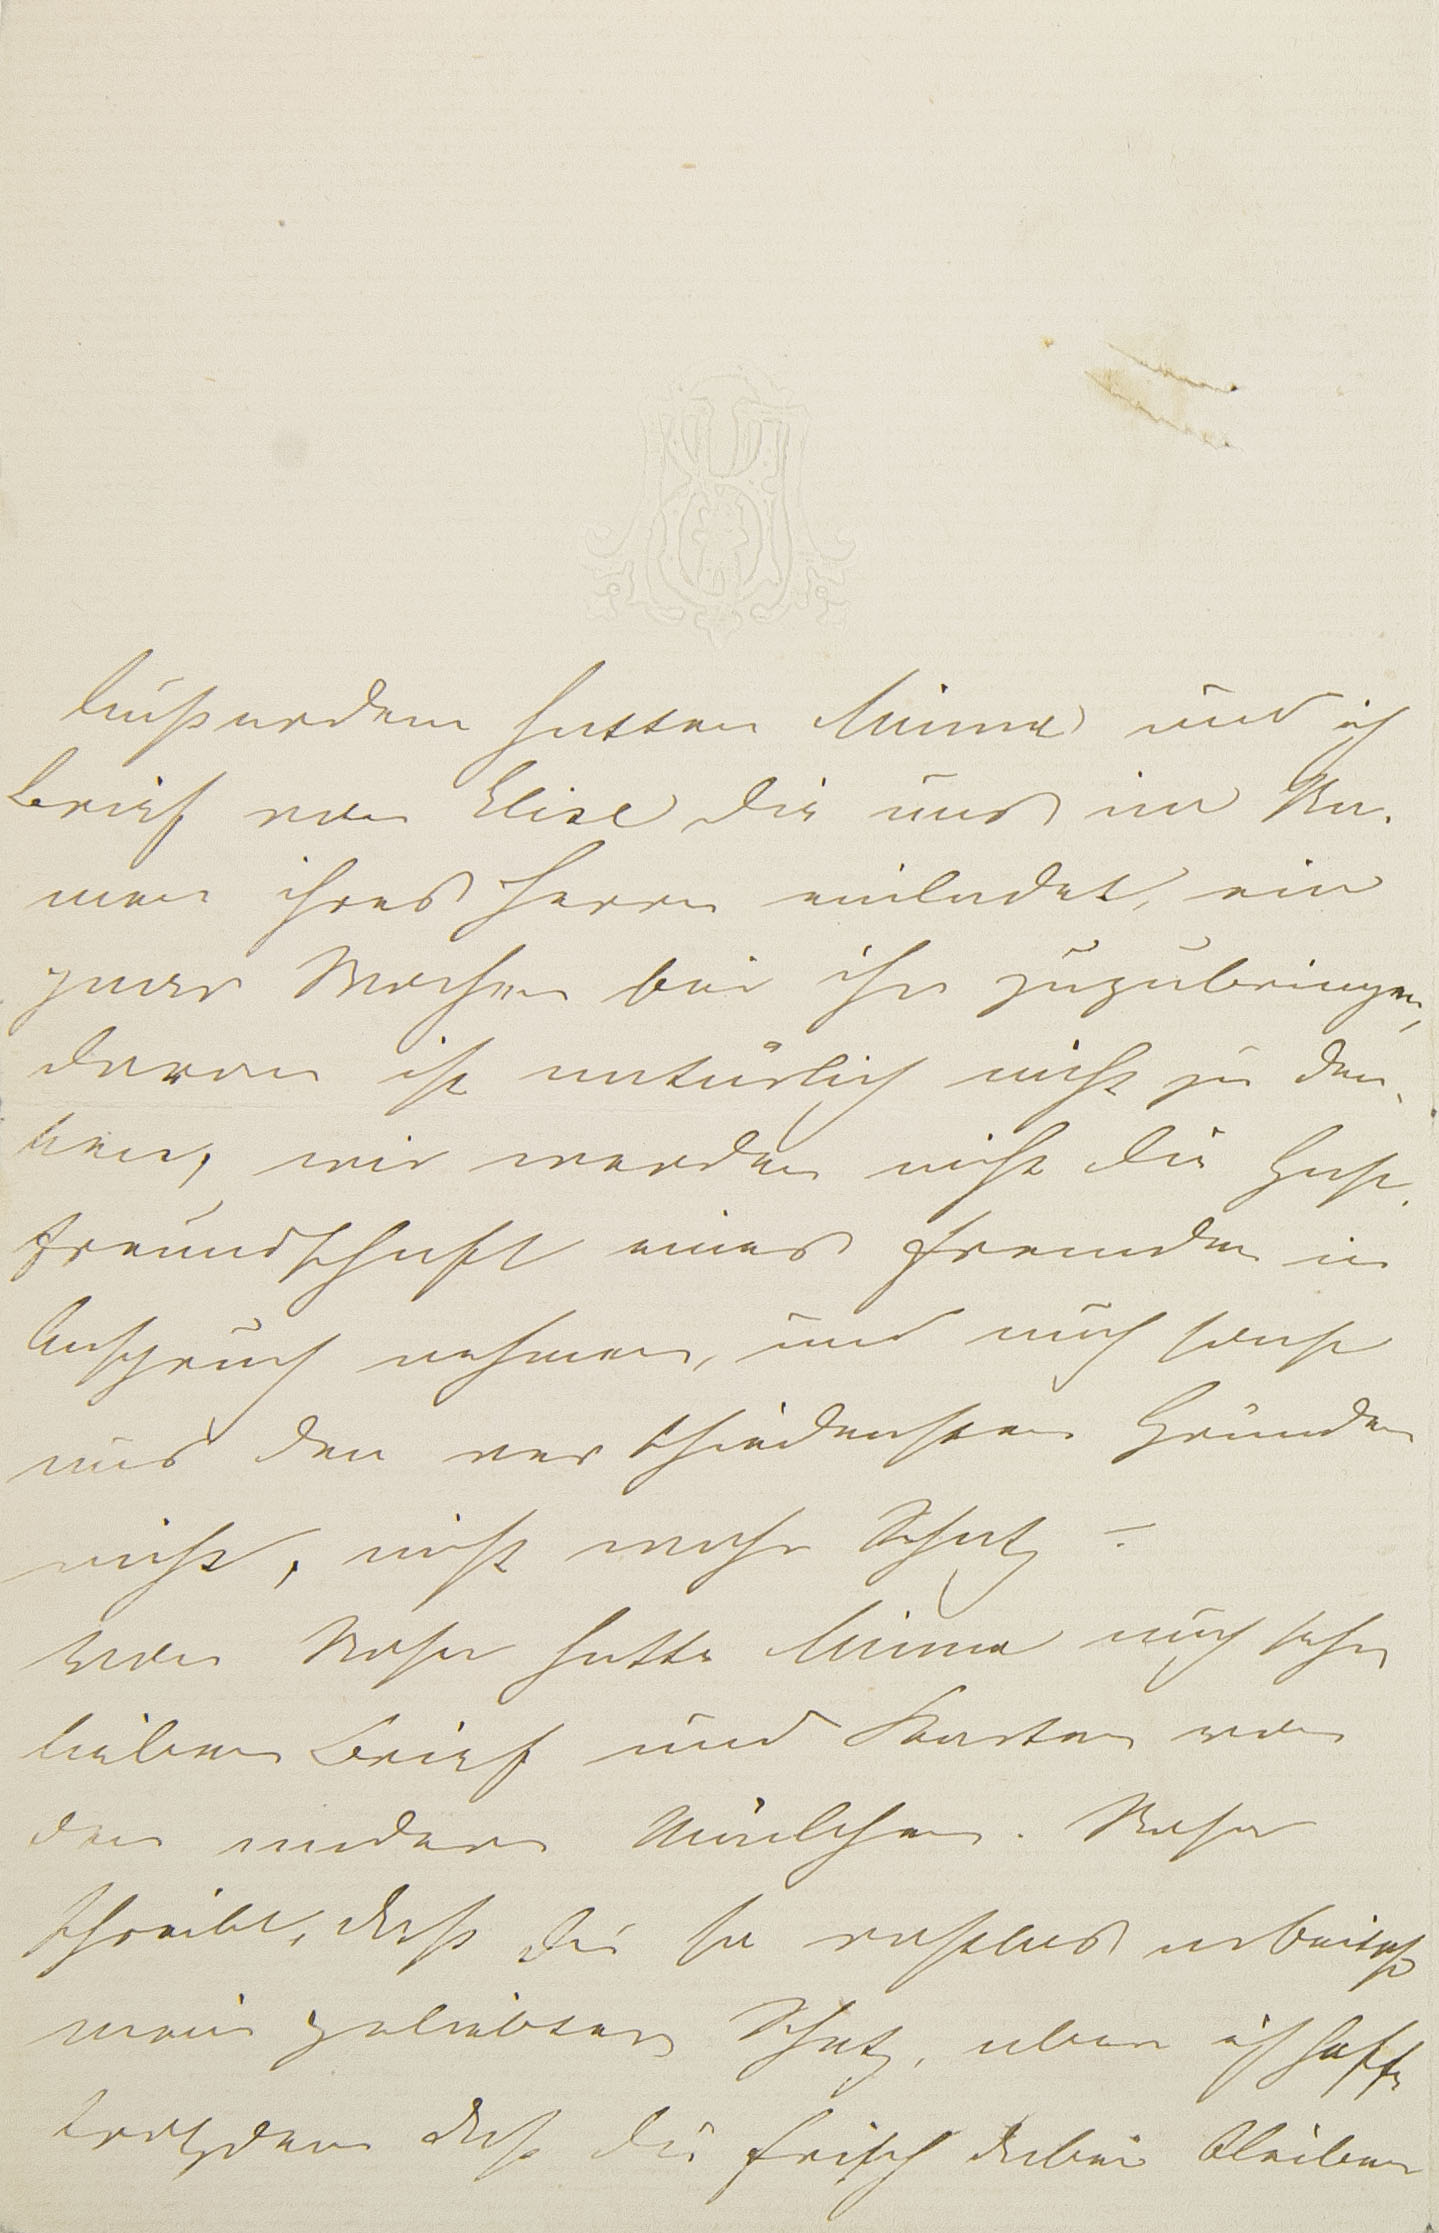 Außerdem hatten Minna und ich
Brief von Elise die uns im Na-
men ihres Herrn einladet, ein
paar Wochen bei ihr zuzubringen,
davon ist natürlich nicht zu den-
ken, wir werden nicht die Gast-
freundschaft eines Fremden in
Anspruch nehmen, und auch sonst
aus den verschiedensten Gründen
nicht, nicht wahr Schatz –
Von Rosa hatte Minna auch sehr
lieben Brief und Karten von
den andern. Rosa
schreibt, daß Du so rastlos arbeitest
mein geliebter Schatz, aber ich hoffe
trotzdem daß Du frisch dabei bleiben